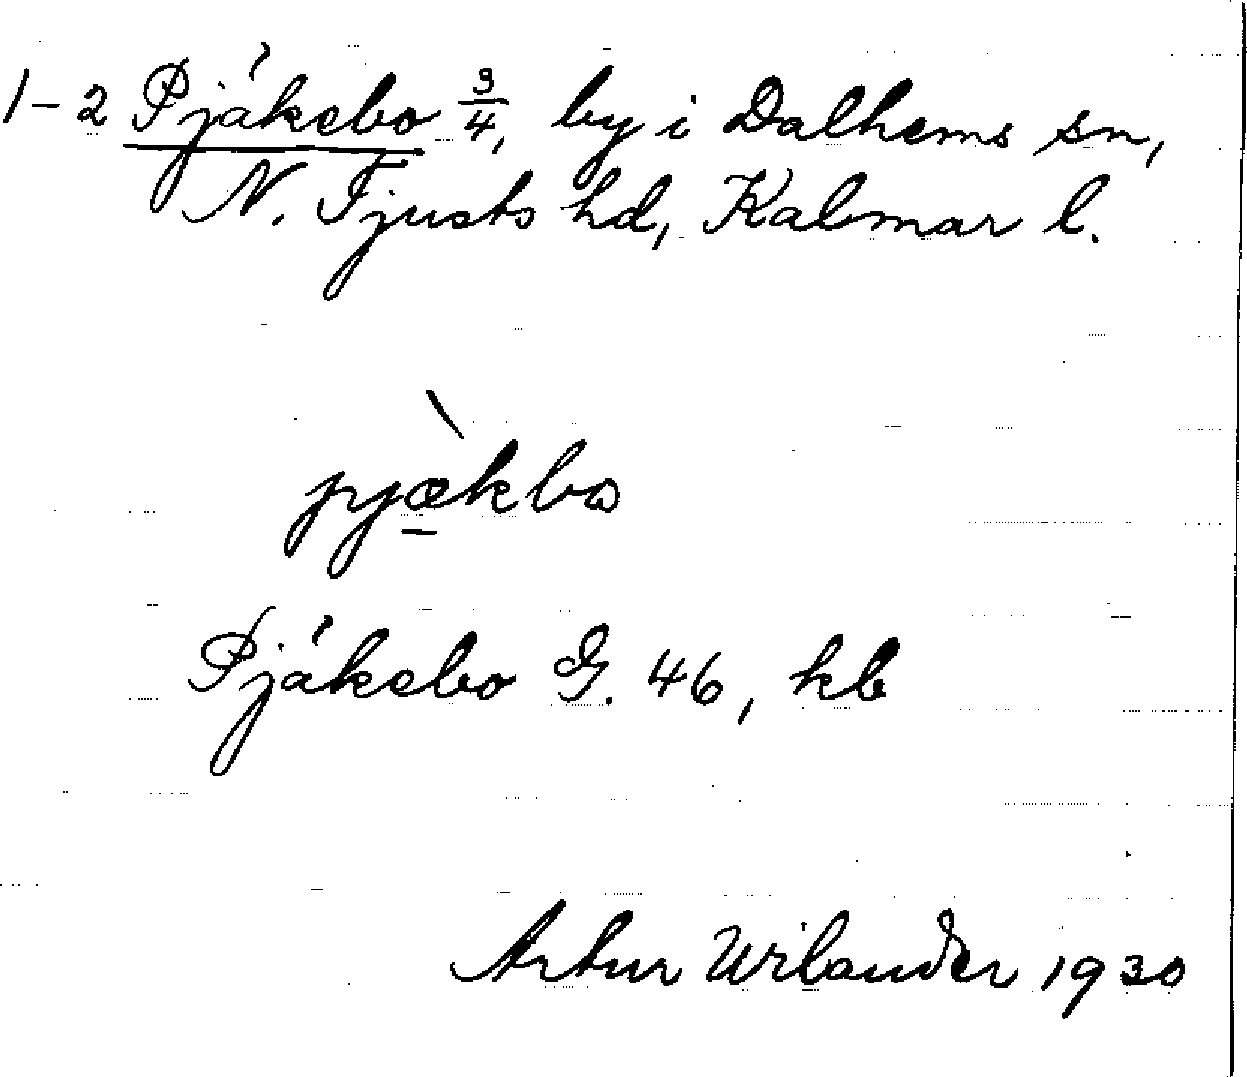 1-2 Pjäkebo 3/4, by i Dalhems sn,
N. Tjusts hd, Kalmar l.
pjæ̠̀kbo
Pjäkebo G. 46, kb
Artur Wilander 1930